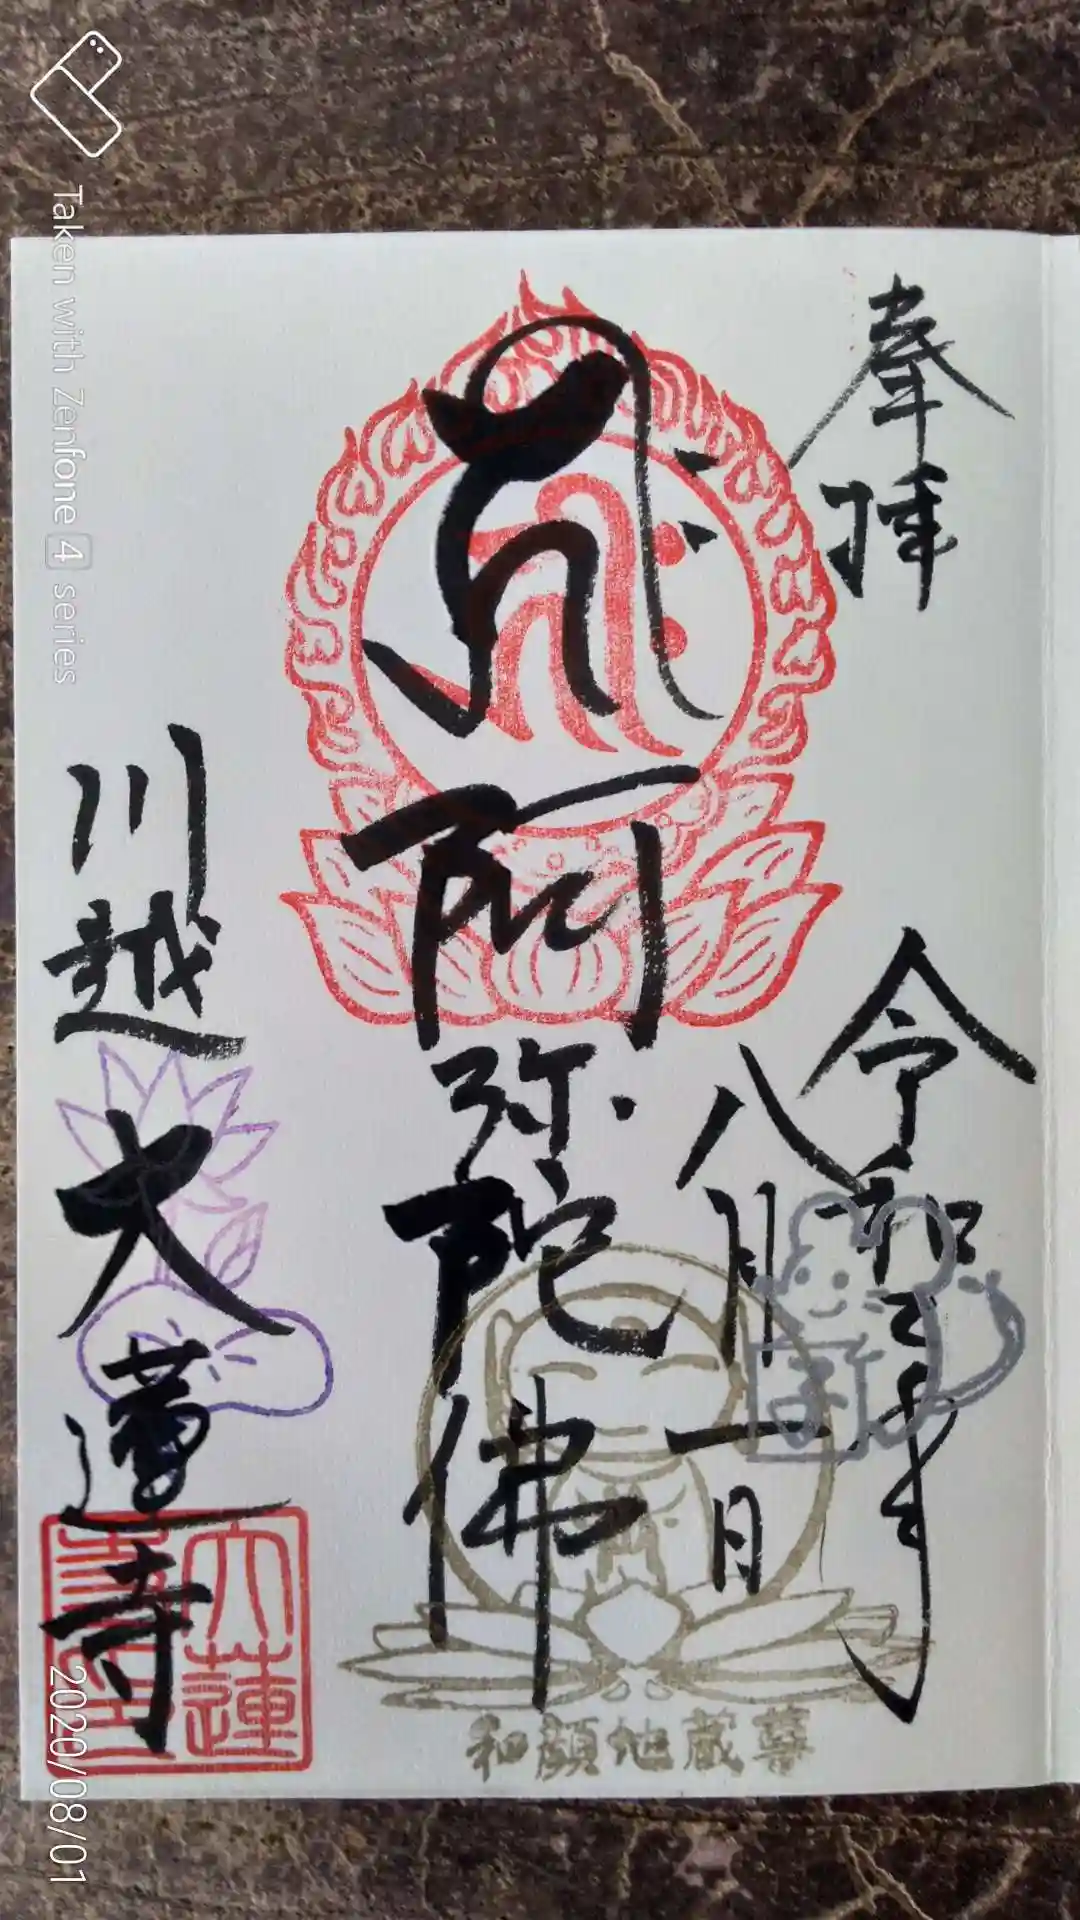 奉拝
令和二年
八月一日
阿弥陀佛
川越
大蓮寺
大蓮
寺印
和顔地蔵尊
子
Taken with Zenfone 4 series
2020/08/01